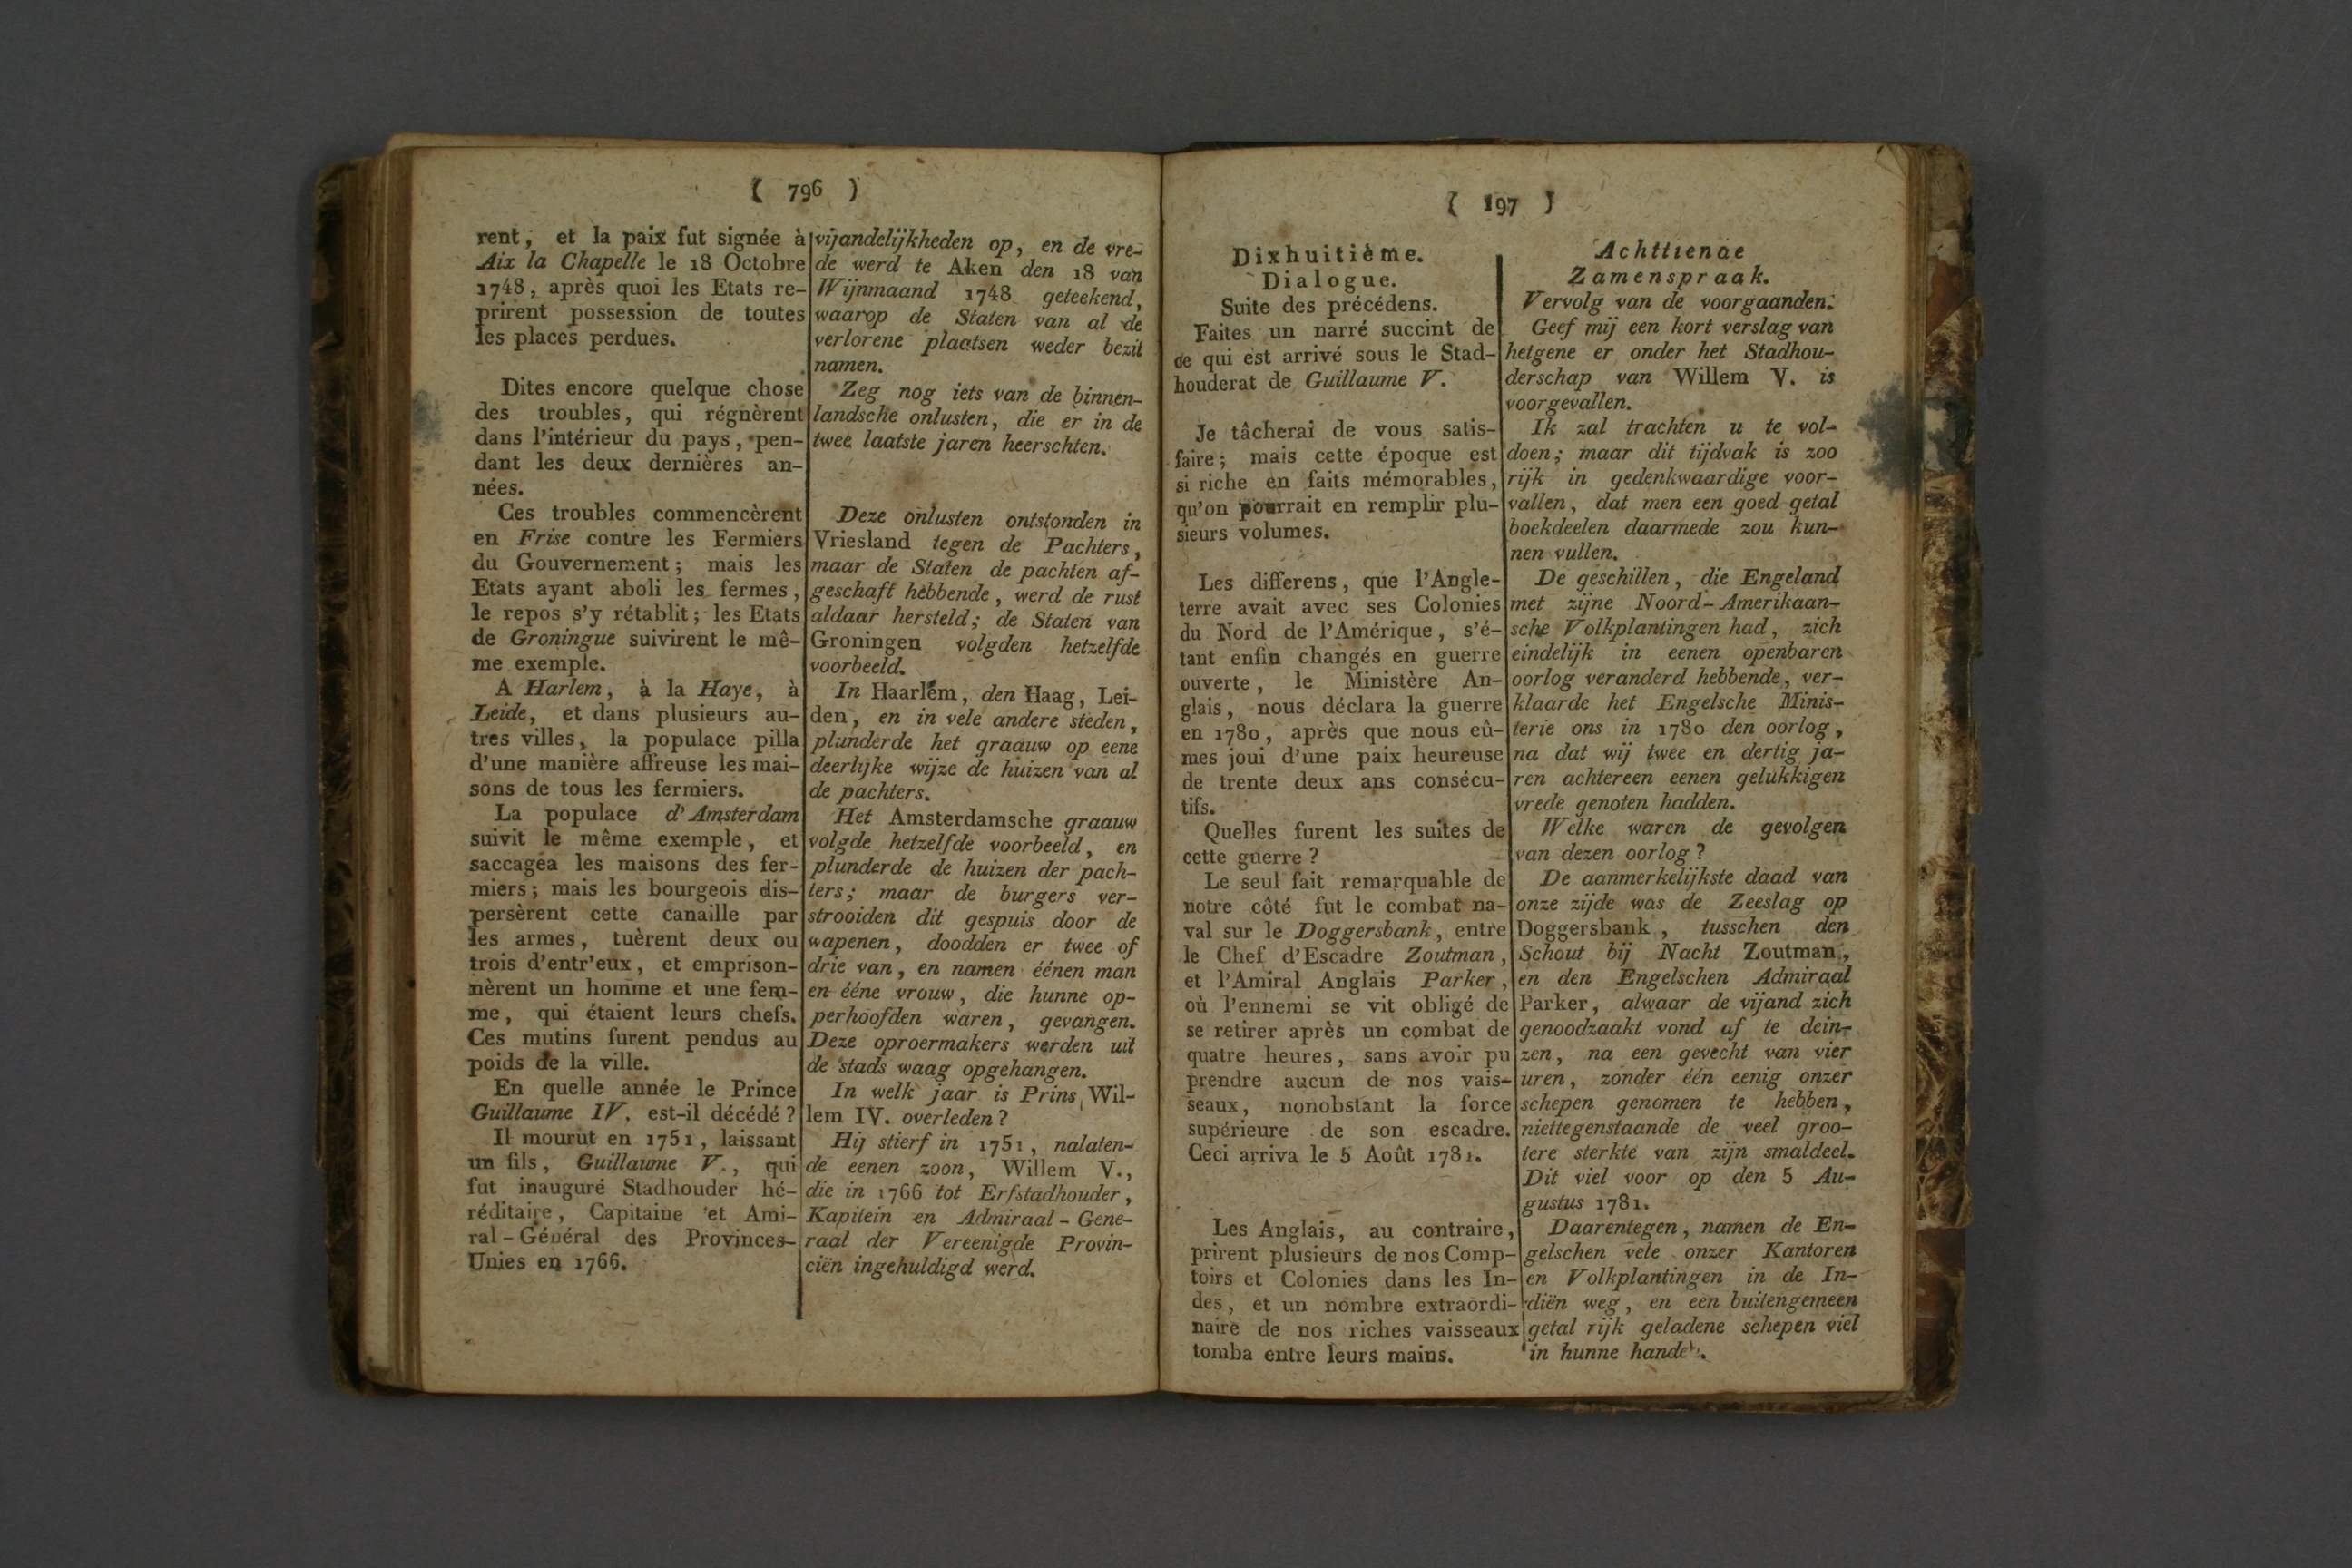 ( 796 )
rent, et la paix fut signée à
Aix la Chapelle le 18 Octobre
1748, après quoi les Etats re-
prirent possession de toutes
les places perdues.
Dites encore quelque chose
des troubles, qui régnèrent
dans l'intérieur du pays, pen-
dant les deux dernières an-
nées.
Ces troubles commencèrent
en Frise contre les Fermiers
du Gouvernement; mais les
Etats ayant aboli les fermes,
le repos s'y rétablit; les Etats
de Groningue suivirent le mê-
me exemple.
A Harlem, à la Haye, à
Leide, et dans plusieurs au-
tres villes, la populace pilla
d'une manière affreuse les mai-
sons de tous les fermiers.
La populace d'Amsterdam
suivit le même exemple, et
saccagea les maisons des fer-
miers; mais les bourgeois dis-
persèrent cette canaille par
les armes, tuèrent deux ou
trois d'entr'eux, et emprison-
nèrent un homme et une fem-
me, qui étaient leurs chefs.
Ces mutins furent pendus au
poids de la ville.
En quelle année le Prince
Guillaume IV. est-il décédé?
Il mourut en 1751, laissant
un fils, Guillaume V., qui
fut inauguré Stadhouder hé-
réditaire, Capitaine et Ami-
ral-Général des Provinces-
Unies en 1766.
vijandelijkheden op, en de vre-
de werd te Aken den 18 van
Wijnmaand 1748 geteekend,
waarop de Staten van al de
verlorene plaatsen weder bezit
namen.
Zeg nog iets van de binnen-
landsche onlusten, die er in de
twee laatste jaren heerschten.
Deze onlusten ontstonden in
Vriesland tegen de Pachters,
maar de Staten de pachten af-
geschaft hebbende, werd de rust
aldaar hersteld; de Staten van
Groningen volgden hetzelfde
voorbeeld.
In Haarlem, den Haag, Lei-
den, en in vele andere steden,
plunderde het graauw op eene
deerlijke wijze de huizen van al
de pachters.
Het Amsterdamsche graauw
volgde hetzelfde voorbeeld, en
plunderde de huizen der pach-
ters; maar de burgers ver-
strooiden dit gespuis door de
wapenen, doodden er twee of
drie van, en namen éénen man
en ééne vrouw, die hunne op-
perhoofden waren, gevangen.
Deze oproermakers werden uit
de stads waag opgehangen.
In welk jaar is Prins Wil-
lem IV. overleden?
Hij stierf in 1751, nalaten-
de eenen zoon, Willem V.,
die in 1766 tot Erfstadhouder,
Kapitein en Admiraal-Gene-
raal der Vereenigde Provin-
ciën ingehuldigd werd.
( 197 )
Dixhuitième.
Dialogue.
Suite des précédens.
Faites un narré succint de
ce qui est arrivé sous le Stad-
houderat de Guillaume V.
Je tâcherai de vous satis-
faire; mais cette époque est
si riche en faits mémorables,
qu'on pourrait en remplir plu-
sieurs volumes.
Les differens, que l'Angle-
terre avait avec ses Colonies
du Nord de l'Amérique, s'é-
tant enfin changés en guerre
ouverte, le Ministère An-
glais, nous déclara la guerre
en 1780, après que nous eû-
mes joui d'une paix heureuse
de trente deux ans consécu-
tifs.
Quelles furent les suites de
cette guerre?
Le seul fait remarquable de
notre côté fut le combat na-
val sur le Doggersbank, entre
le Chef d'Escadre Zoutman,
et l'Amiral Anglais Parker,
où l'ennemi se vit obligé de
se retirer après un combat de
quatre heures, sans avoir pu
prendre aucun de nos vais-
seaux, nonobstant la force
supérieure de son escadre.
Ceci arriva le 5 Août 1781.
Les Anglais, au contraire,
prirent plusieurs de nos Comp-
toirs et Colonies dans les In-
des, et un nombre extraordi-
naire de nos riches vaisseaux
tomba entre leurs mains.
Achttiende
Zamenspraak.
Vervolg van de voorgaanden.
Geef mij een kort verslag van
hetgene er onder het Stadhou-
derschap van Willem V. is
voorgevallen.
Ik zal trachten u te vol-
doen; maar dit tijdvak is zoo
rijk in gedenkwaardige voor-
vallen, dat men een goed getal
boekdeelen daarmede zou kun-
nen vullen.
De geschillen, die Engeland
met zijne Noord-Amerikaan-
sche Volkplantingen had, zich
eindelijk in eenen openbaren
oorlog veranderd hebbende, ver-
klaarde het Engelsche Minis-
terie ons in 1780 den oorlog,
na dat wij twee en dertig ja-
ren achtereen eenen gelukkigen
vrede genoten hadden.
Welke waren de gevolgen
van dezen oorlog?
De aanmerkelijkste daad van
onze zijde was de Zeeslag op
Doggersbank, tusschen den
Schout bij Nacht Zoutman,
en den Engelschen Admiraal
Parker, alwaar de vijand zich
genoodzaakt vond af te dein-
zen, na een gevecht van vier
uren, zonder één eenig onzer
schepen genomen te hebben,
niettegenstaande de veel groo-
tere sterkte van zijn smaldeel.
Dit viel voor op den 5 Au-
gustus 1781.
Daarentegen, namen de En-
gelschen vele onzer Kantoren
en Volkplantingen in de In-
diën weg, en een buitengemeen
getal rijk geladene schepen viel
in hunne handen.